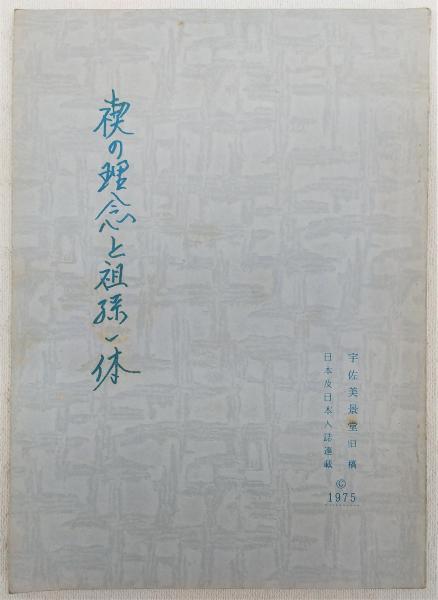 禊の理念と祖孫一体
宇佐美景堂旧稿
日本及日本人誌連載
©
1975